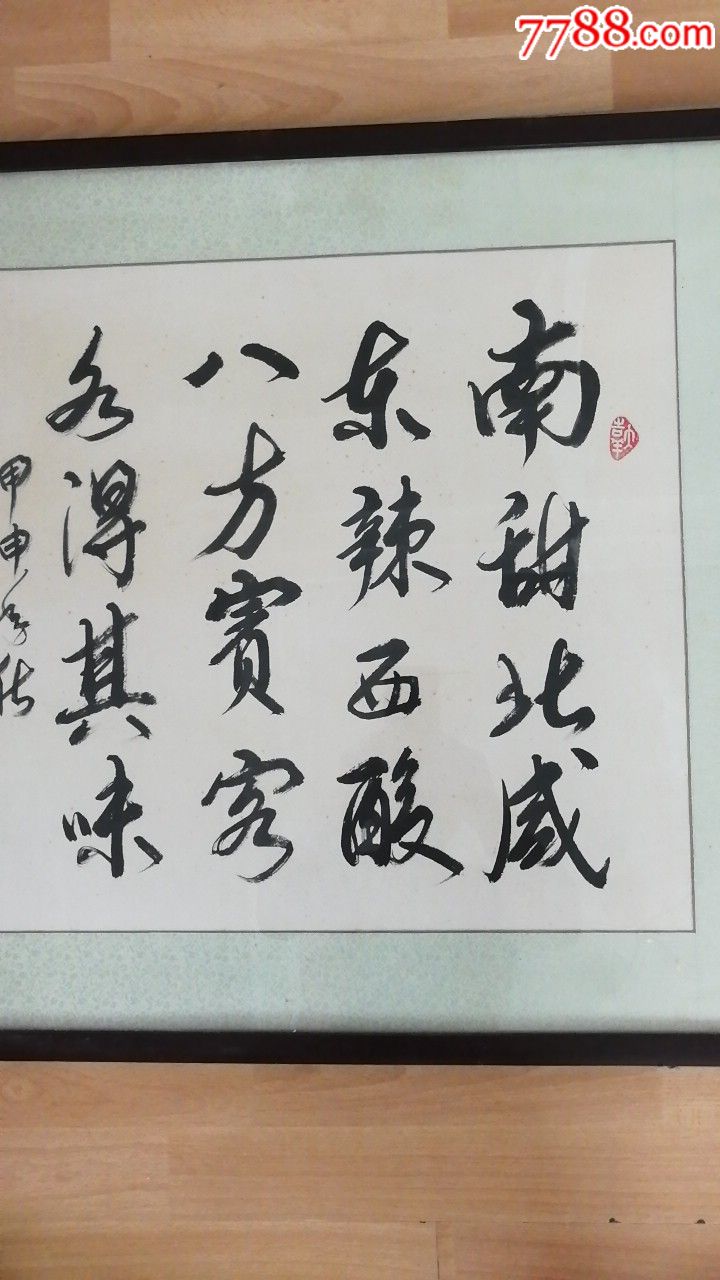 7788.com
南甜北咸
东辣西酸
八方賓客
各得其味
甲申年秋